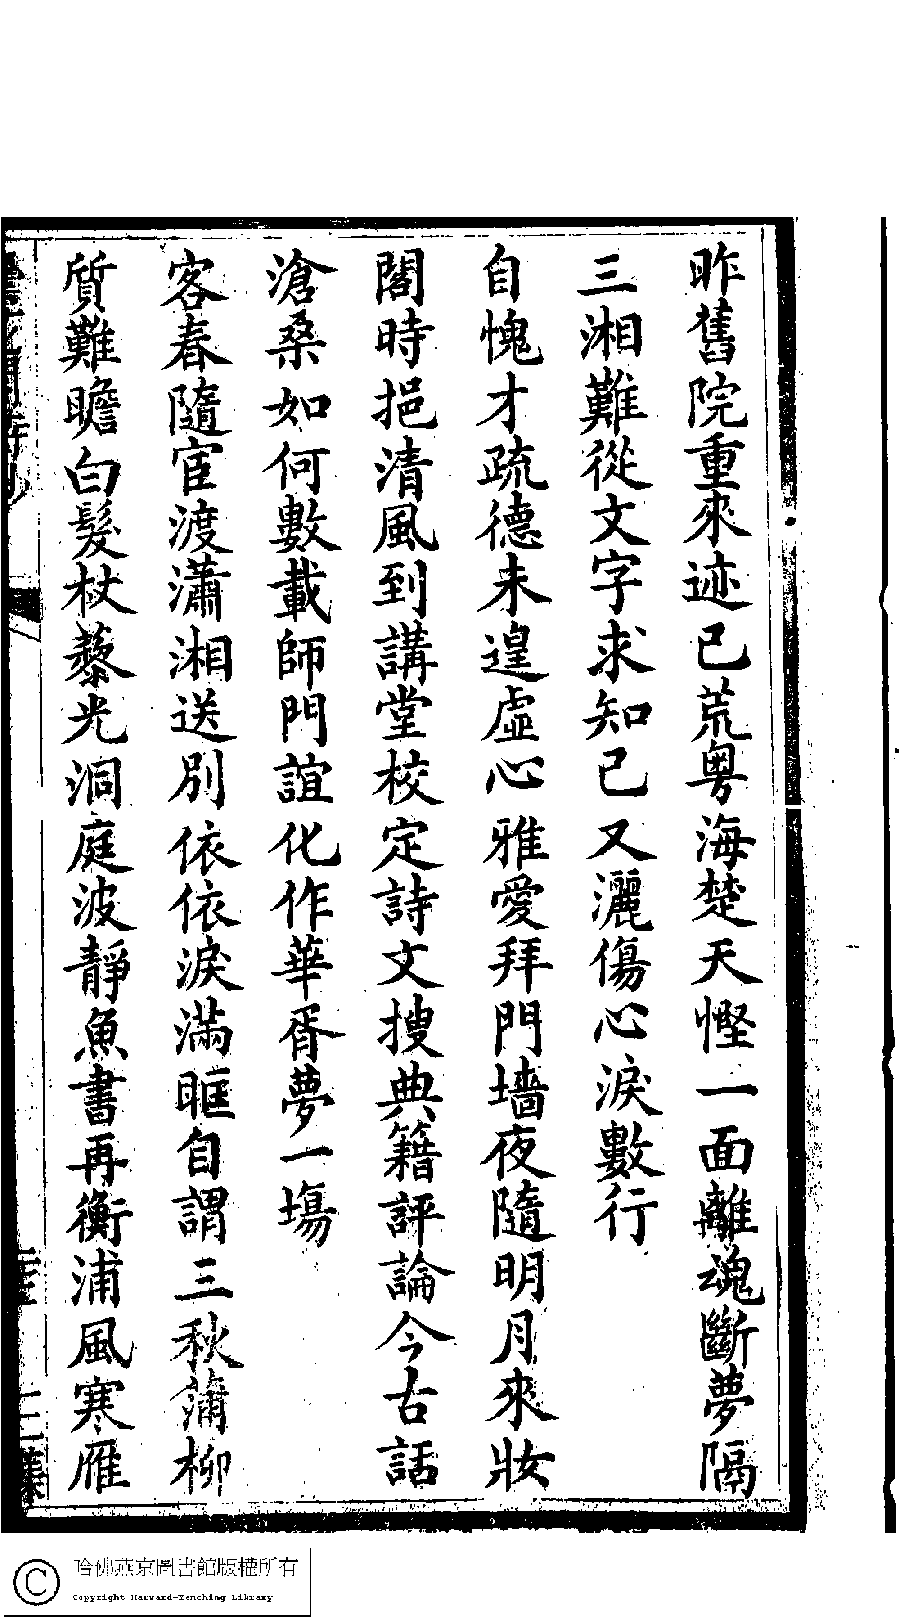 昨舊院重來迹已荒粤海楚天慳一面離魂斷夢隔
三湘難從文字求知己又灑傷心淚數行
自愧才疏德未遑虛心雅愛拜門墻夜隨明月來妝
閣時挹清風到講堂校定詩文搜典籍評論今古話
滄桑如何數載師門誼化作華胥夢一塲
客春隨宦渡瀟湘送別依依淚滿眶自謂三秋蒲柳
質難瞻白髮杖藜光洞庭波靜魚書再衡浦風寒雁
哈佛燕京圖書館版權所有
Copyright Harvard-Yenching Library